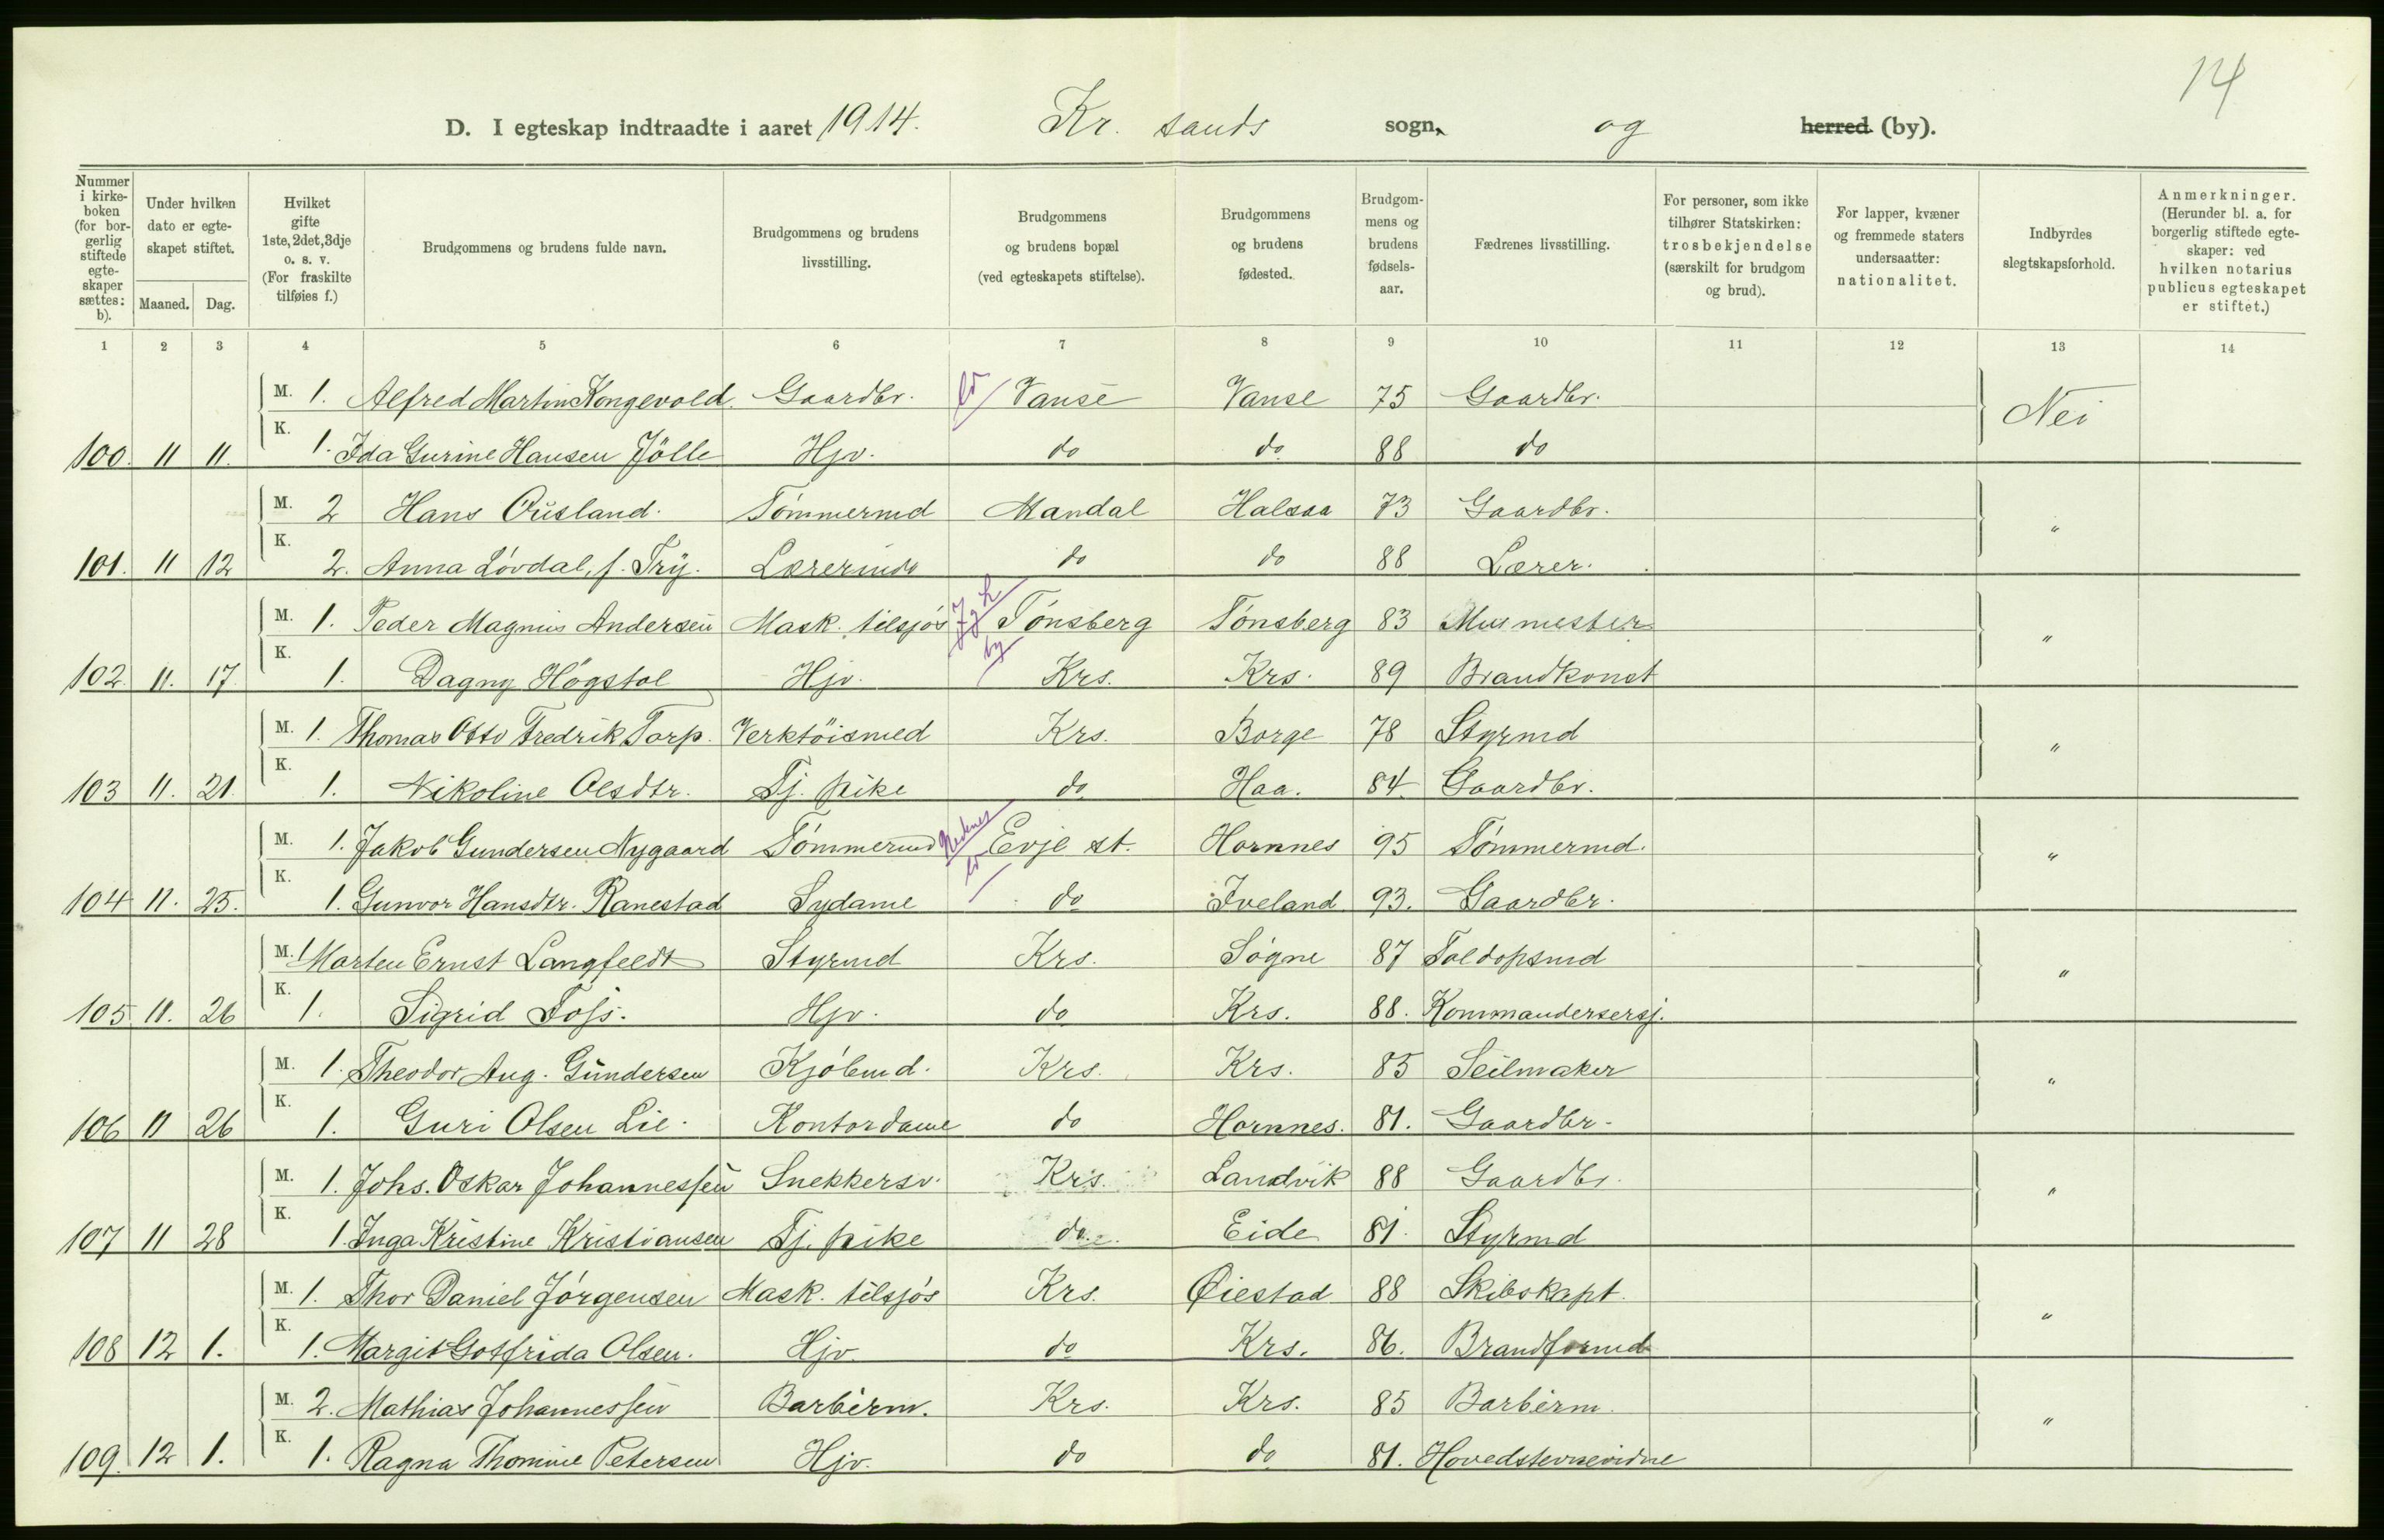 14
D. I egteskap indtraadte i aaret 1914. Kr. sands sogn, og herred (by).
Nummer i kirkeboken (for borgerlig stiftede egteskaper sættes: b).
Under hvilken dato er egteskapet stiftet.
Maaned. Dag.
Hvilket gifte 1ste, 2det, 3dje o. s. v. (For fraskilte tilføies f.)
Brudgommens og brudens fulde navn.
Brudgommens og brudens livsstilling.
Brudgommens og brudens bopæl (ved egteskapets stiftelse).
Brudgommens og brudens fødested.
Brudgommens og brudens fødselsaar.
Fædrenes livsstilling.
For personer, som ikke tilhører Statskirken: trosbekjendelse (særskilt for brudgom og brud).
For lapper, kvæner og fremmede staters undersaatter: nationalitet.
Indbyrdes slegtskapsforhold.
Anmerkninger. (Herunder bl. a. for borgerlig stiftede egteskaper: ved hvilken notarius publicus egteskapet er stiftet.)
1 2 3 4 5 6 7 8 9 10 11 12 13 14
M. 1. Alfred Martin Kongevold. Gaardbr. Vanse Vanse 75 Gaardbr. Nei
100. 11 11. K. 1. Ida Gurine Hansen Jölle Hjv. do do 88 do
M. 2 Hans Ousland. Tömmermd Mandal Halsaa 73 Gaardbr. "
101. 11 12 K. 2. Anna Lövdal, f. Try. Lærerinde do do 88 Lærer.
M. 1. Peder Magnus Andersen Mask. tilsjös Tönsberg Tönsberg 83 Murmester "
102. 11. 17. K. 1. Dagny Högstol Hjv. by Krs. Krs. 89 Brandkonst
M. 1. Thomas Otto Fredrik Torp. Verktöismed Krs. Borge 78 Styrmd "
103 11. 21. K. 1. Nikoline Olsdtr. Tj. pike do Haa. 84 Gaardbr.
M. 1. Jakob Gundersen Nygaard Tömmermd Nedenes Evje st. Hornnes 95 Tömmermd. "
104 11. 25. K. 1. Gunvor Hansdtr. Ranestad Sydame do Iveland 93. Gaardbr.
M. 1 Morten Ernst Langfeldt Styrmd Krs. Sögne 87 Toldopsmd "
105 11. 26 K. 1. Sigrid Foss. Hjv. do Krs. 88. Kommandersersj.
M. 1. Theodor Aug. Gundersen Kjöbmd. Krs. Krs. 85 Seilmaker "
106 11 26 K. 1. Guri Olsen Lie. Kontordame do Hornnes. 81. Gaardbr.
M. 1. Johs. Oskar Johannessen Snekkersv. Krs. Landvik 88 Gaardbr. "
107 11 28 K. 1. Inga Kristine Kristiansen Tj. pike do. Eide 81. Styrmd
M. 1. Thor Daniel Jörgensen Mask. tilsjös Krs. Øiestad 88 Skibskapt. "
108 12 1. K. 1. Margit Gotfrida Olsen. Hjv. do Krs. 86. Brandformd
M. 2. Mathias Johannessen Barbérm. Krs. Krs. 85 Barbérm. "
109. 12 1. K. 1. Ragna Thomine Petersen Hjv. do do 81. Hovedstevnevidne